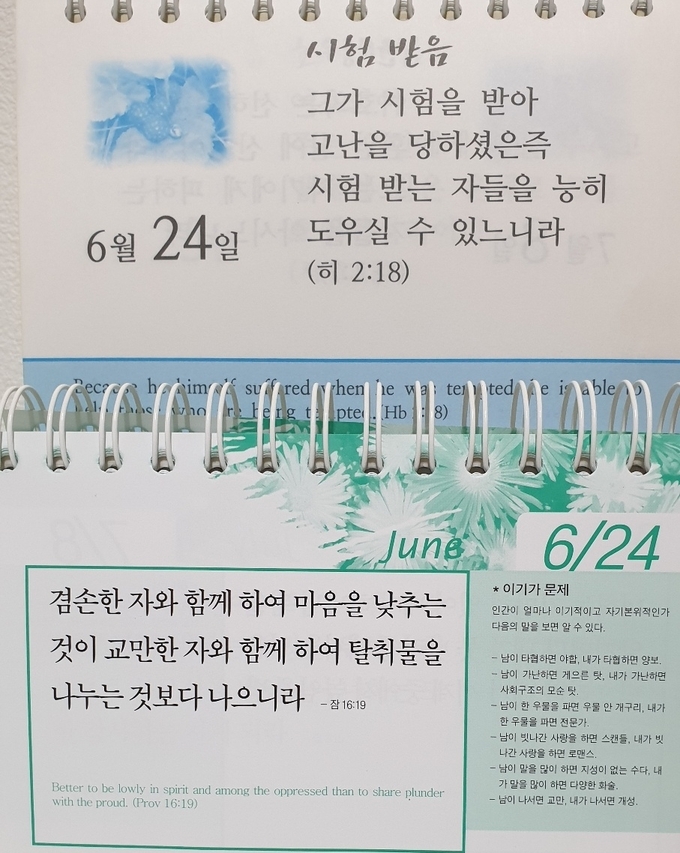 시험 받음
그가 시험을 받아
고난을 당하셨은즉
시험 받는 자들을 능히
도우실 수 있느니라
(히 2:18)
6월 24일
Because he himself suffered when he was tempted, he is able to
those who are being tempted. (Hb 8)
June
6/24
겸손한 자와 함께 하여 마음을 낮추는
것이 교만한 자와 함께 하여 탈취물을
나누는 것보다 나으니라 – 잠 16:19
Better to be lowly in spirit and among the oppressed than to share plunder
with the proud. (Prov 16:19)
* 이기가 문제
인간이 얼마나 이기적이고 자기본위적인가
다음의 말을 보면 알 수 있다.
– 남이 타협하면 야합, 내가 타협하면 양보.
– 남이 가난하면 게으른 탓, 내가 가난하면
사회구조의 모순 탓.
– 남이 한 우물을 파면 우물 안 개구리, 내가
한 우물을 파면 전문가.
– 남이 빗나간 사랑을 하면 스캔들, 내가 빗
나간 사랑을 하면 로맨스.
– 남이 말을 많이 하면 지성이 없는 수다, 내
가 말을 많이 하면 다양한 화술.
– 남이 나서면 교만, 내가 나서면 개성.